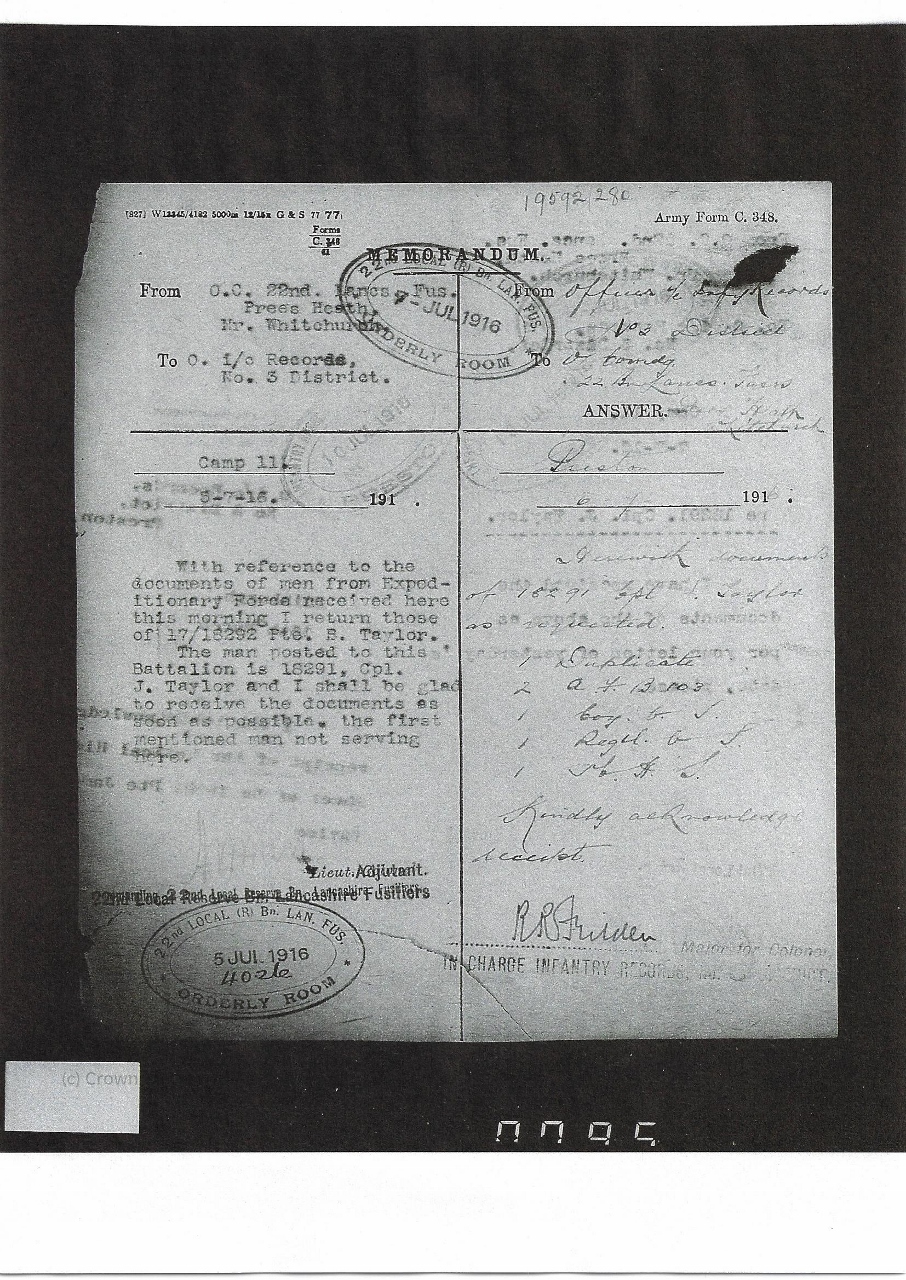 19592/280
[827] W12345/4182 5000m 12/15x G & S 77 77
Army Form C. 348.
Forms
C. 348
MEMORANDUM.
From O.C. 22nd. Lancs. Fus.
Prees Heath,
Nr. Whitchurch.
To O. i/c Records,
No. 3 District.
22nd LOCAL (R) Bn. LAN. FUS.
7-JUL 1916
ORDERLY ROOM
From Officer i/c Infy Records
No 3 District
To O Comdg
22 Bn Lancs. Fusrs
Prees Heath
Whitchurch
ANSWER.
10 JUL 1916
PRESTON
Camp 11.
5-7-16. 191 .
Preston
6 7 191 .
With reference to the
documents of men from Exped-
itionary Force received here
this morning I return those
of 17/18292 Pte. B. Taylor.
The man posted to this
Battalion is 18291, Cpl.
J. Taylor and I shall be glad
to receive the documents as
soon as possible, the first
mentioned man not serving
here.
Lieut. Adjutant.
22nd Local Reserve Bn. Lancashire Fusiliers
22nd LOCAL (R) Bn. LAN. FUS.
5 JUL. 1916
4026
ORDERLY ROOM
Herewith documents
of 18291 Cpl J. Taylor
as requested.
1 Duplicate
2 A F B 103
1 Coy. C. S.
1 Regtl. C. S.
1 M. H. S.
Kindly acknowledge
receipt.
Major for Colonel
IN CHARGE INFANTRY RECORDS, No. 3 DISTRICT.
(c) Crown